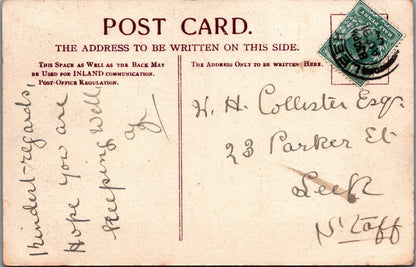 POST CARD.
THE ADDRESS TO BE WRITTEN ON THIS SIDE.
THIS SPACE AS WELL AS THE BACK MAY
BE USED FOR INLAND COMMUNICATION.
POST-OFFICE REGULATION.
THE ADDRESS ONLY TO BE WRITTEN HERE.
Kindest-regards
Hope you are
keeping well,
H. H. Collister Esqr.
23 Parker St
Leek
N. Staff